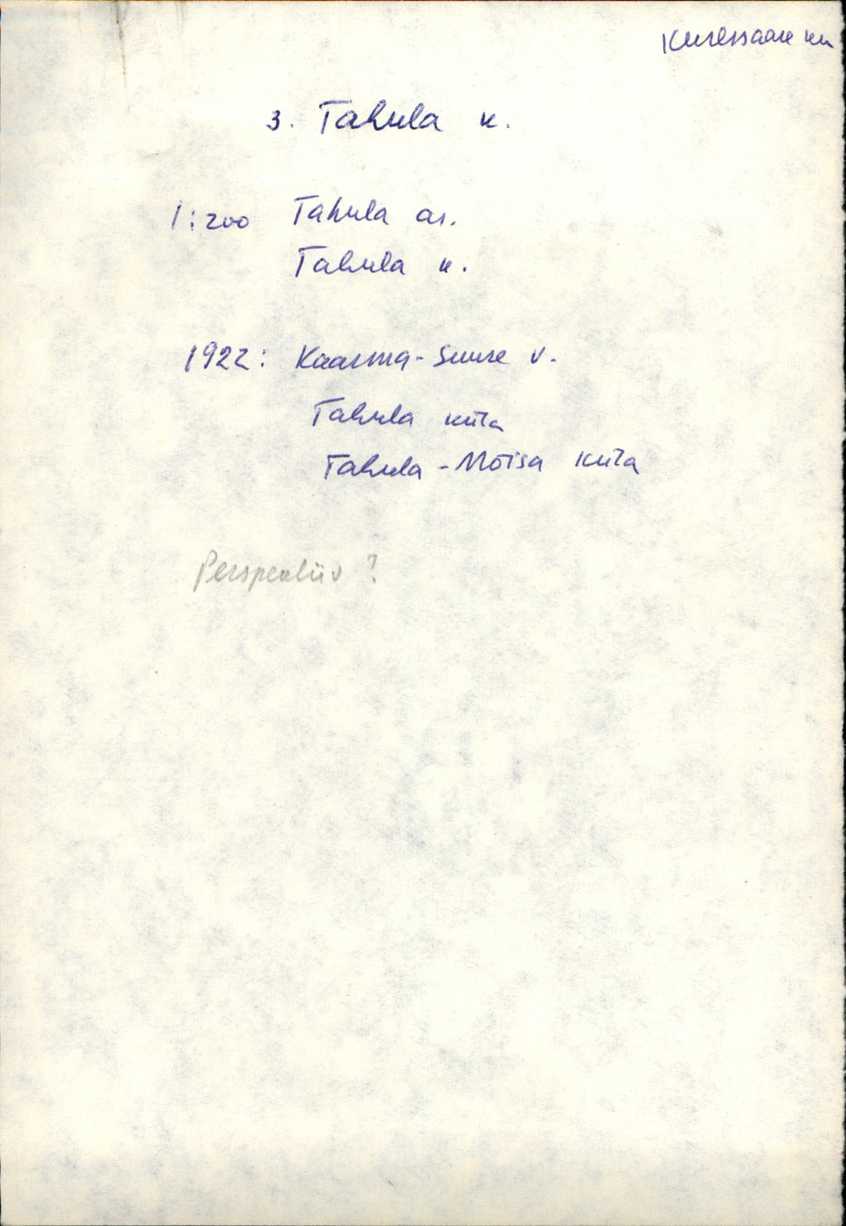 Kuressaare kn
3. Tahula k.
1:200 Tahula as.
Tahula k.
1922: Kaarma-Suure v.
Tahula küla
Tahula-Mõisa küla
Perspektiiv ?